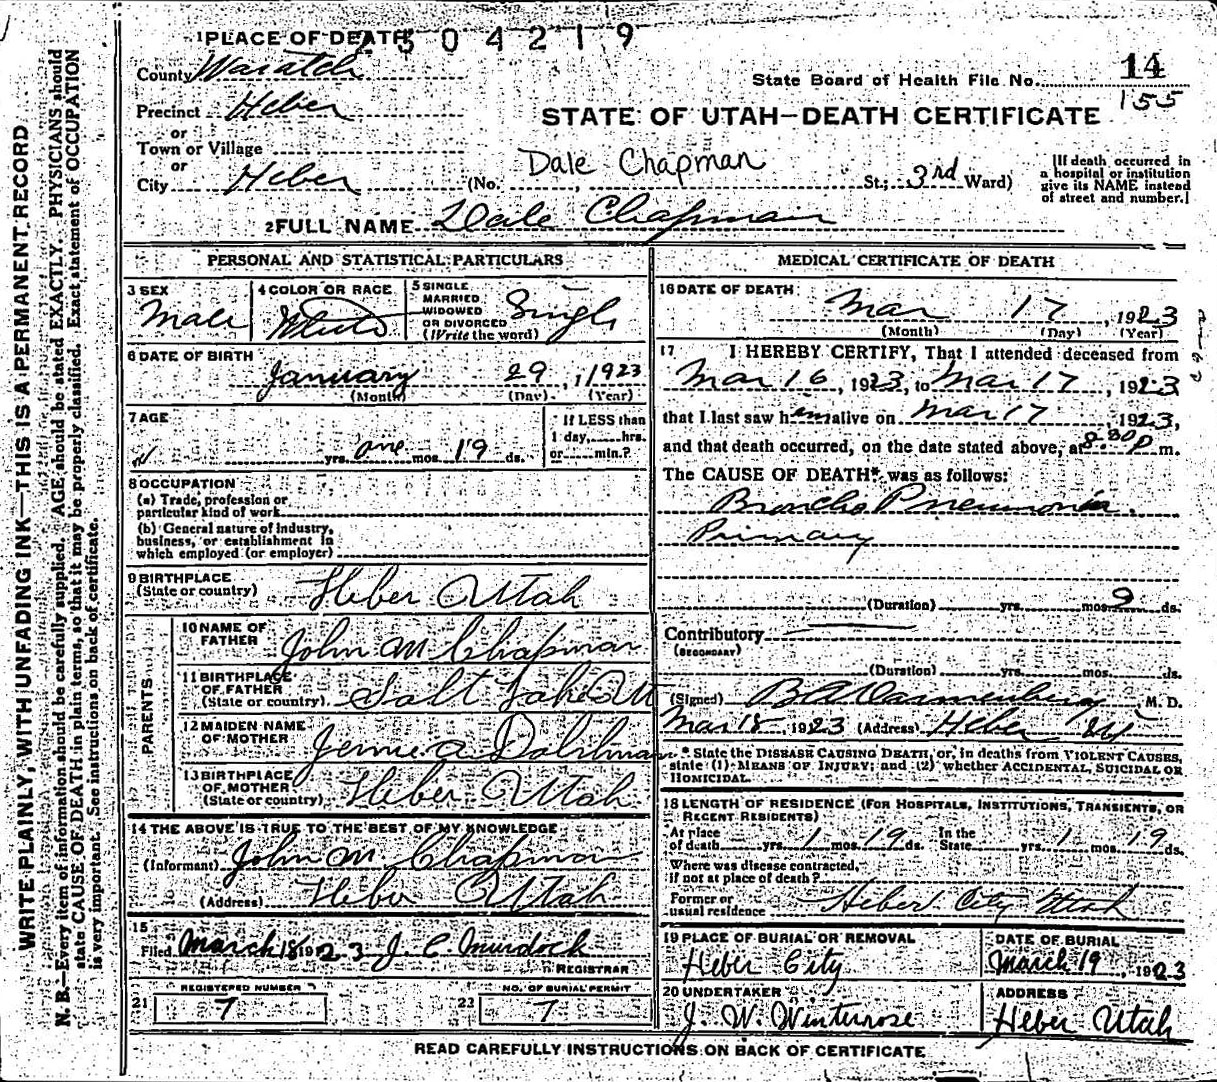 1 PLACE OF DEATH
2304219
County Wasatch
State Board of Health File No. 14
155
Precinct Heber
STATE OF UTAH—DEATH CERTIFICATE
or
Town or Village
or
City Heber
(No. Dale Chapman St.; 3rd Ward)
[If death occurred in
a hospital or institution
give its NAME instead
of street and number.]
2 FULL NAME Dale Chapman
PERSONAL AND STATISTICAL PARTICULARS
3 SEX
Male
4 COLOR OR RACE
White
5 SINGLE
MARRIED
WIDOWED
OR DIVORCED
(Write the word)
Single
6 DATE OF BIRTH
January 29, 1923
(Month) (Day) (Year)
7 AGE
yrs. one mos. 19 ds.
If LESS than
1 day, hrs.
or min.?
8 OCCUPATION
(a) Trade, profession or
particular kind of work
(b) General nature of industry,
business, or establishment in
which employed (or employer)
9 BIRTHPLACE
(State or country) Heber Utah
PARENTS
10 NAME OF
FATHER John M Chapman
11 BIRTHPLACE
OF FATHER
(State or country) Salt Lake Ut
12 MAIDEN NAME
OF MOTHER Jennie A
13 BIRTHPLACE
OF MOTHER
(State or country) Heber Utah
14 THE ABOVE IS TRUE TO THE BEST OF MY KNOWLEDGE
(Informant) John M. Chapman
(Address) Heber Utah
15
Filed March 18 1923 J. C. Murdock
REGISTRAR
21 REGISTERED NUMBER
7
23 NO. OF BURIAL PERMIT
7
MEDICAL CERTIFICATE OF DEATH
16 DATE OF DEATH
Mar 17, 1923
(Month) (Day) (Year)
17 I HEREBY CERTIFY, That I attended deceased from
Mar 16, 1923, to Mar 17, 1923
that I last saw him alive on Mar 17, 1923,
and that death occurred, on the date stated above, at 8.30 p m.
The CAUSE OF DEATH* was as follows:
Broncho Pneumonia.
Primary
(Duration) yrs. mos. 9 ds.
Contributory
(SECONDARY)
(Duration) yrs. mos. ds.
(Signed) , M. D.
Mar 18 1923 (Address) Heber Ut
* State the DISEASE CAUSING DEATH, or, in deaths from VIOLENT CAUSES,
state (1) MEANS OF INJURY; and (2) whether ACCIDENTAL, SUICIDAL OR
HOMICIDAL.
18 LENGTH OF RESIDENCE (FOR HOSPITALS, INSTITUTIONS, TRANSIENTS, OR
RECENT RESIDENTS)
At place
of death yrs. 1 mos. 19 ds.
In the
State yrs. 1 mos. 19 ds.
Where was disease contracted,
if not at place of death?
Former or
usual residence Heber City Utah
19 PLACE OF BURIAL OR REMOVAL
Heber City
DATE OF BURIAL
March 19, 1923
20 UNDERTAKER
J. W. Winterrose
ADDRESS
Heber Utah
READ CAREFULLY INSTRUCTIONS ON BACK OF CERTIFICATE
WRITE PLAINLY, WITH UNFADING INK—THIS IS A PERMANENT RECORD
N. B.—Every item of information should be carefully supplied. AGE should be stated EXACTLY. PHYSICIANS should
state CAUSE OF DEATH in plain terms, so that it may be properly classified. Exact statement of OCCUPATION
is very important. See instructions on back of certificate.